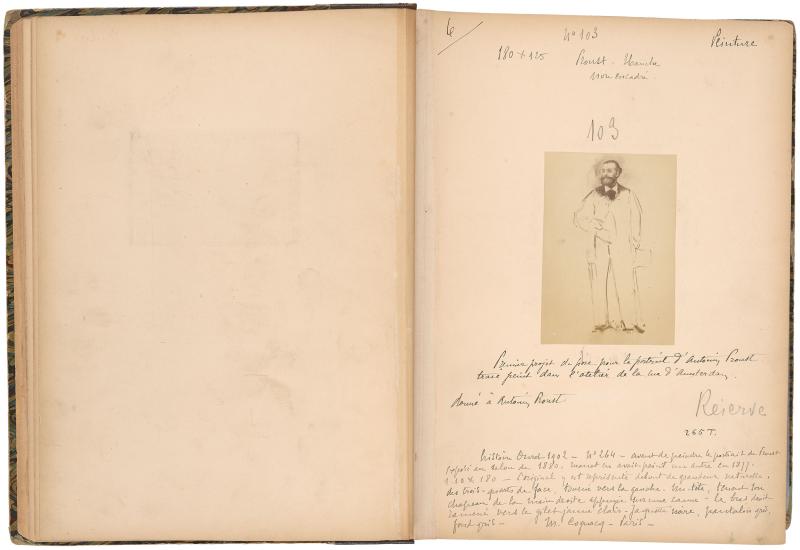 6
Nº 103
Peinture
180 x 125
Proust - Blanche
non encadré.
103
Premier projet de pose pour le portrait d'Antonin Proust
tracé peint dans l'atelier de la rue d'Amsterdam.
Donné à Antonin Proust
Réserve
265 T.
Duret 1902 - Nº 264 - avant de peindre le portrait de Proust
exposé au salon de 1880, Manet en avait peint un autre en 1877.
1.10 x 180 - L'original y est représenté debout de grandeur naturelle,
des trois-quarts de face, tourné vers la gauche. Nu-tête, tenant son
chapeau de la main droite appuyée sur une canne - le bras droit
ramené vers le gilet jaune clair - Jaquette noire, pantalon gris,
fond gris - M. Cognacq - Paris -